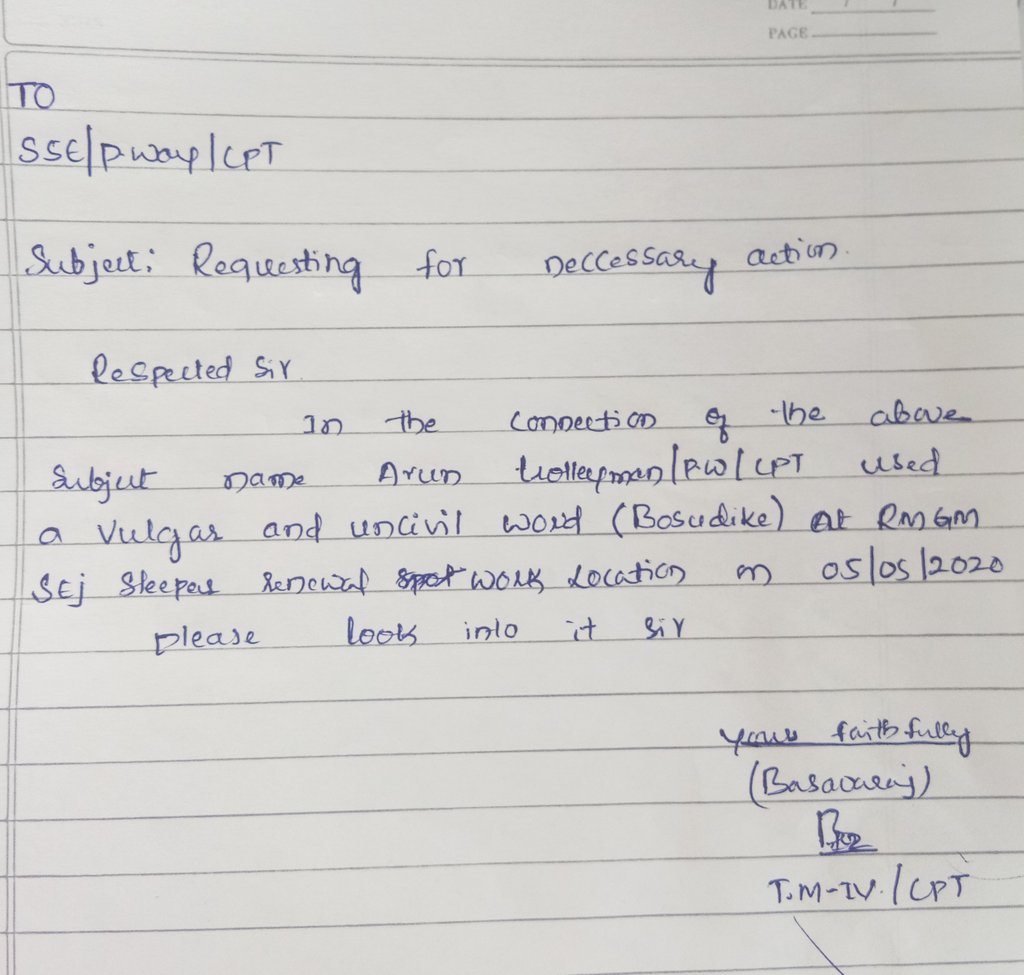 DATE / /
PAGE
TO
SSE/P.way/CPT
Subject: Requesting for neccessary action.
Respected Sir
In the connection of the above
Subject name Arun trolleyman/P.W/CPT used
a vulgar and uncivil word (Bosudike) at RMGM
SEJ Sleepers renewal work Location on 05/05/2020
please look into it Sir
yours faithfully
(Basavaraj)
T.M-IV./CPT